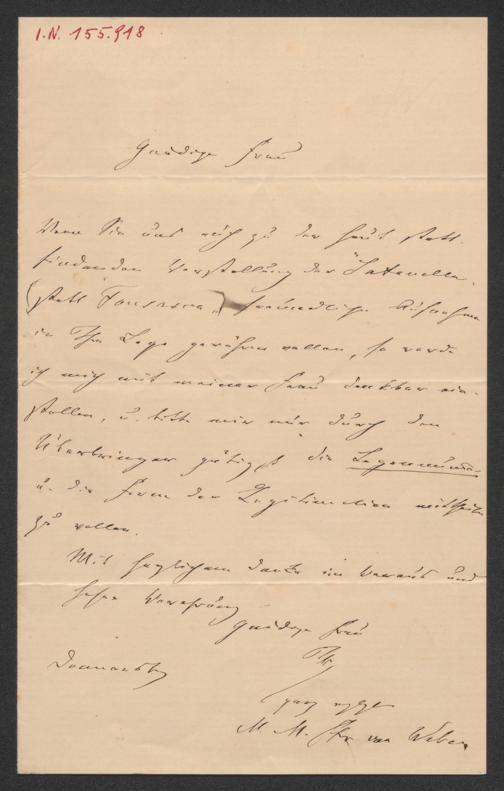 I.N. 155.918
Gnädige Frau
Wenn Sie uns auch zu der heut statt-
findenden Vorstellung der "Satanella"
(statt Fonsasca) freundliche Aufnahme
in Ihre Loge gewähren wollen, so werde
ich mich mit meiner Frau dankbar ein-
stellen, u. bitte mir nur durch den
Überbringer gütigst die Logennummer
u. die Form der Legitimation mittheilen
zu wollen.
Mit herzlichem Danke im Voraus und
hoher Verehrung
Gnädige Frau
Ihr
ganz ergebener
Donnerstag
M M. von Weber